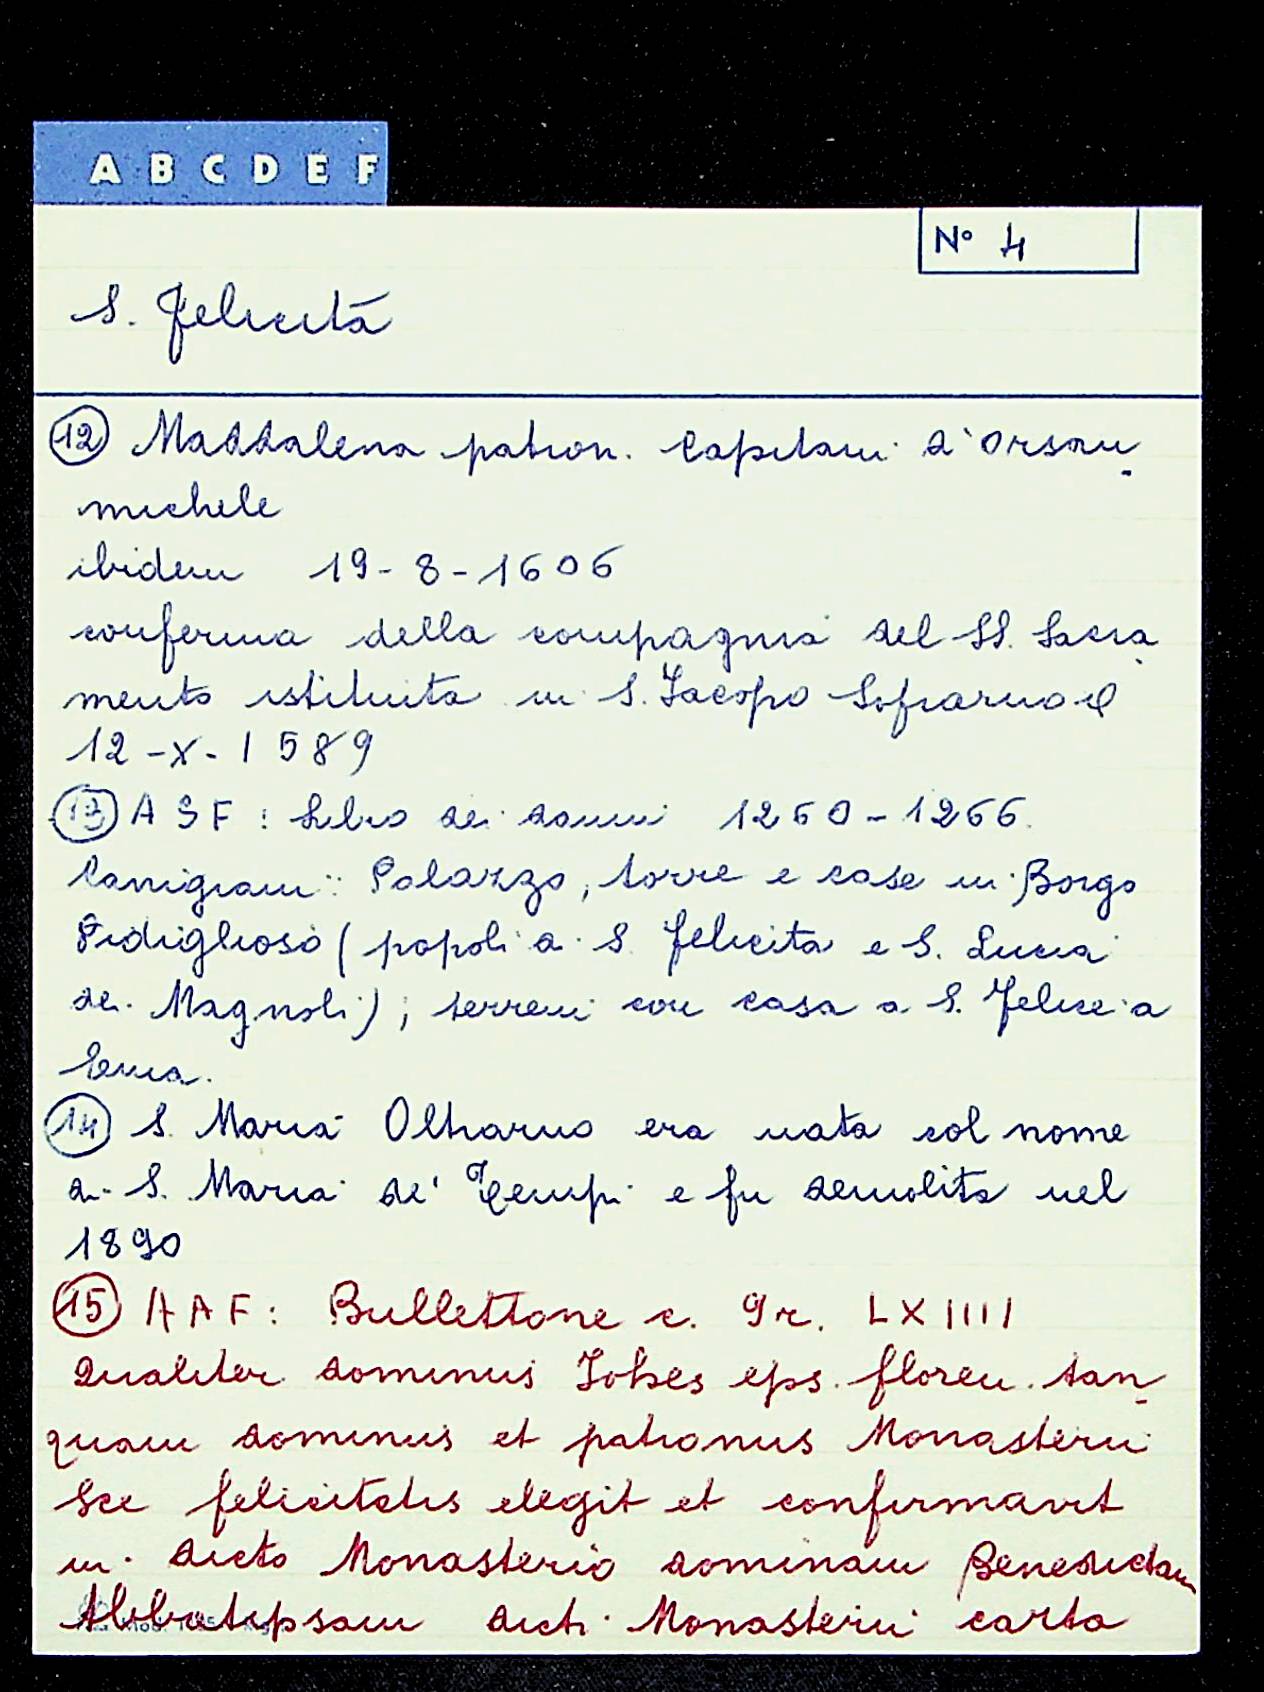 A B C D E F
N° 4
S. Felicità
12 Maddalena patron. Capitani d'Orsan-
michele
ibidem 19-8-1606
conferma della compagnia del SS. Sacra-
mento istituita in S. Jacopo Sofrarno il
12-X-1589
13 ASF: Libro dei danni 1260-1266.
Canigiani: Palazzo, torre e case in Borgo
Pidiglioso (popoli di S. Felicita e S. Lucia
dei Magnoli); terreni con casa a S. Felice a
Ema.
14 S. Maria Oltrarno era nata col nome
di S. Maria de' Tempi e fu demolita nel
1890
15 AAF: Bullettone c. 9r. LXIIII
Qualiter dominus Johes eps. floren. tan-
quam dominus et patronus Monasterii
Sce felicitatis elegit et confirmavit
in dicto Monasterio dominam Benedictam
Abbatipsam dicti Monasterii carta